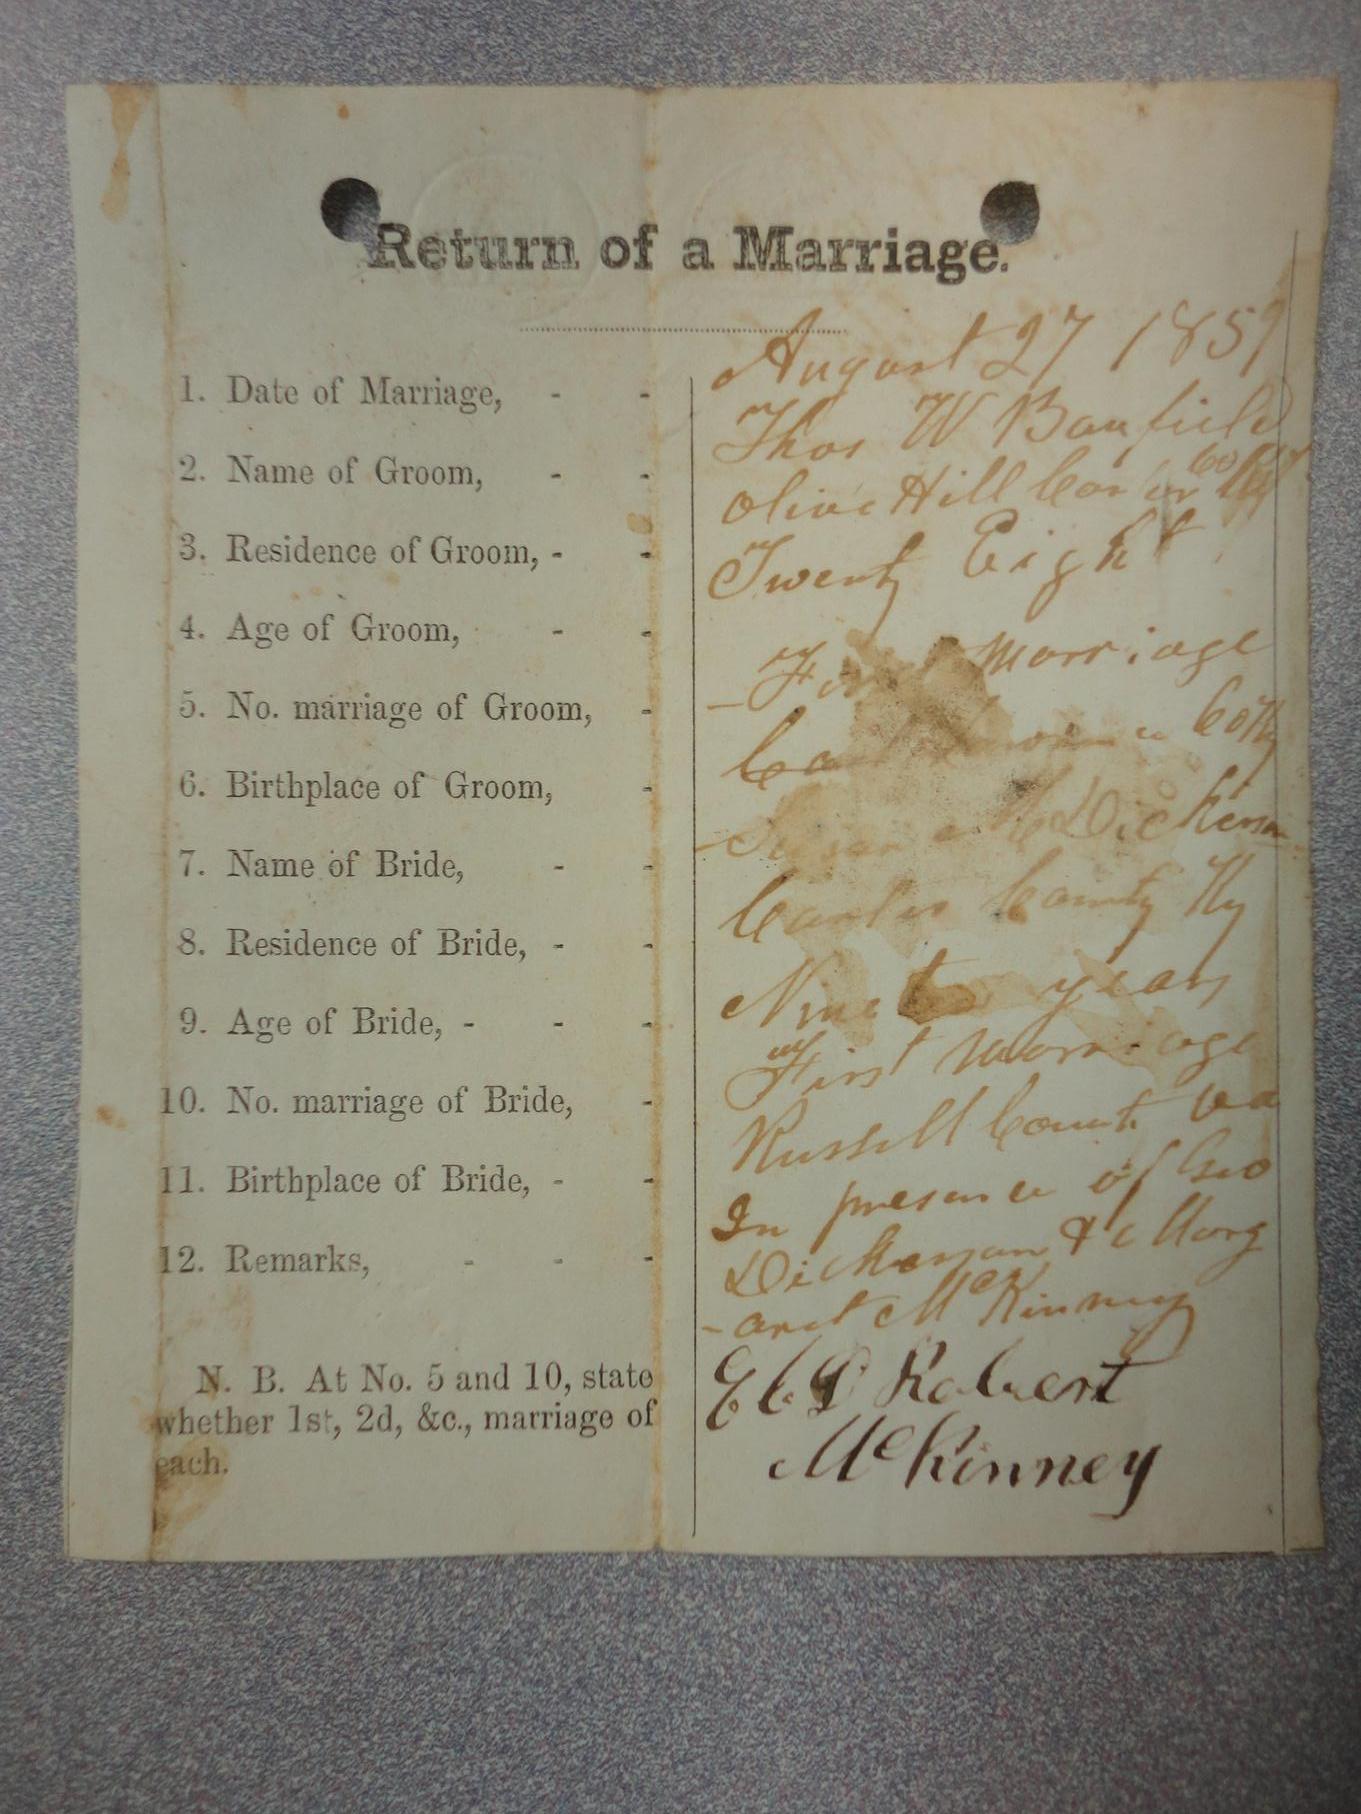 Return of a Marriage.
1. Date of Marriage, - - August 27 1859
2. Name of Groom, - - Thos W Banfield
3. Residence of Groom, - - Olive Hill Carter Co Ky
4. Age of Groom, - - Twenty Eight
5. No. marriage of Groom, - First Marriage
6. Birthplace of Groom, - Co Ky
7. Name of Bride, - - Susan M Dickerson
8. Residence of Bride, - - Carter County Ky
9. Age of Bride, - - - years
10. No. marriage of Bride, - First Marriage
11. Birthplace of Bride, - - Russell County Va
12. Remarks, - - - In presence of Geo
Dickerson & Marg
-aret McKinney
N. B. At No. 5 and 10, state
whether 1st, 2d, &c., marriage of
each.
Robert
McKinney